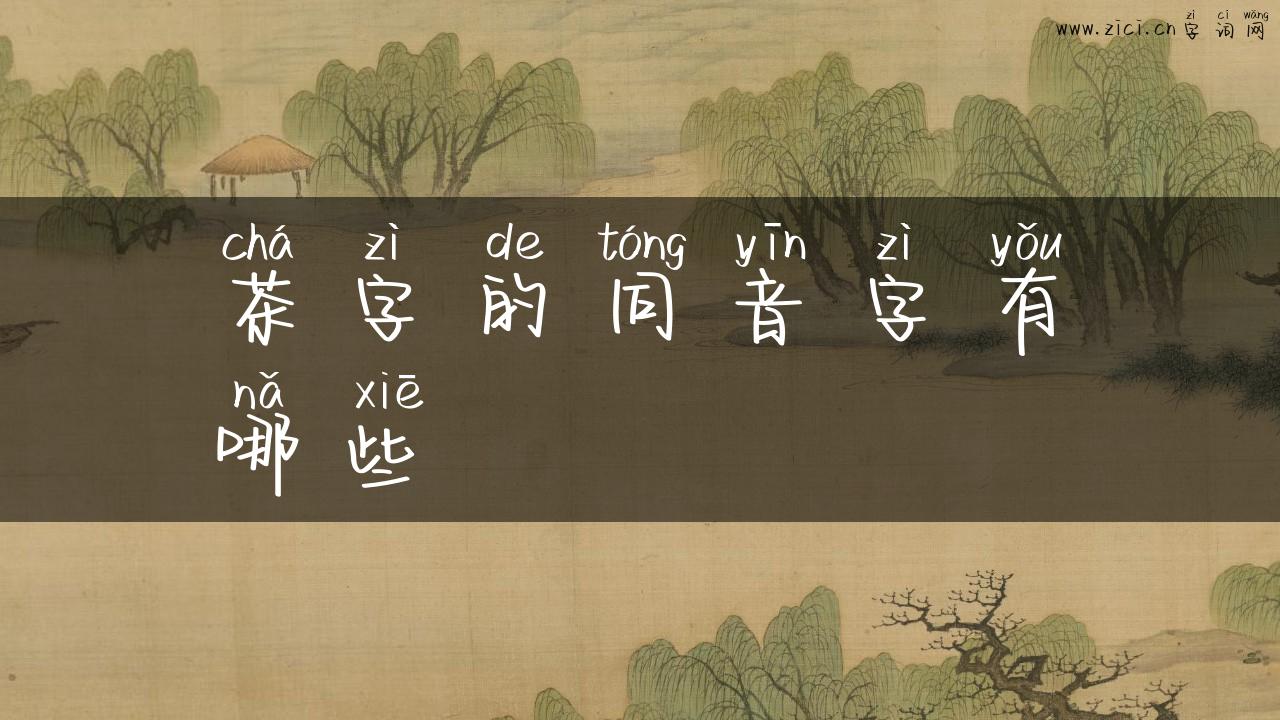 zì cí wǎng
www.zici.cn 字 词 网
chá zì de tóng yīn zì yǒu
茶 字 的 同 音 字 有
nǎ xiē
哪 些